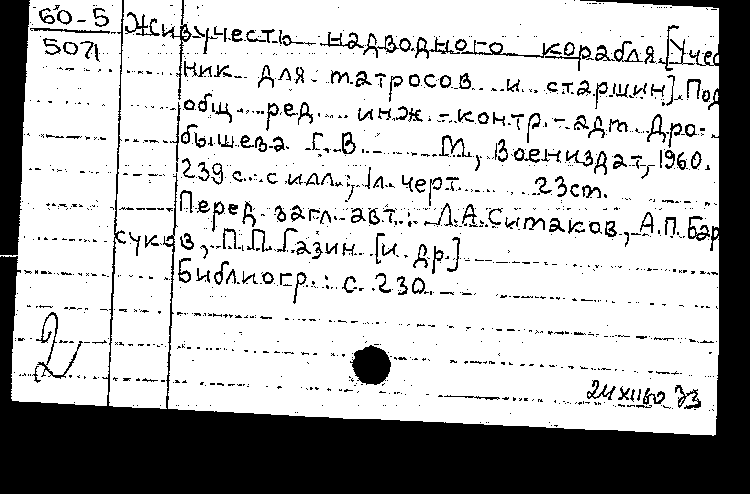 60-5
5071
Живучесть надводного корабля. [Учеб
ник для матросов и старшин]. Под
общ. ред. инж.-контр.-адм. Дро-
бышева Г.В. М., Воениздат, 1960.
239 с. с илл.; 1 л. черт. 23 см.
Перед загл. авт.: Л.А. Ситаков, А.П. Бар
суков, П.П. Газин [и др.]
Библиогр.: с. 230.
2